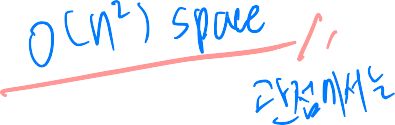 O(n²) space
관점에서는